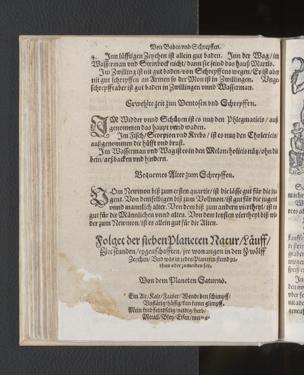 Von Baden vnd Schrepffen.
Inn lüfftigen Zeychen ist allen gut baden. Inn der Wag / im
Wasserman vnd Steinbock nicht / dann sie seind das hauß Martis.
Im Zwilling ist nit gut baden / von Schrepffens wegen / Es ist aber
nit gut schrepffen an Armen so der Mon ist im Zwilling.
schrepfft aber ist gut baden in Zwillingen vnnd Wasserman.
Erwehlte zeit zum Ventosen vnd Schrepffen.
IM Wider vnnd Schützen ist es nutz den Phlegmaticis / auß
genommen das haupt vnnd
Im Fisch / Scorpion vnd Krebs / ist es nutz den Cholericis /
außgenommen die hüfft vnd brust.
Im Wasserman vnd Wag ist es den Melancholicis nütz / ohn die
bein / arßbacken vnd hindern.
Bequemes Alter zum Schrepffen.
VOm Newmon biß zum ersten quartir / ist die lässe gut für die ju-
gent. Von demselbigen biß zum Vollmon ist gut für die jugent
vnnd mannlich alter. Von dem biß zum andern viertheyl / ist es
gut für die Männlichen vnnd alten. Von dem letsten viertheyl biß wi-
der zum Newmon / ist es allein gut für die Alten.
Folget der sieben Planeten Natur / Läuff /
Vierstanden / eygenschafften / jre wonungen in den Zwölff
Zeychen / Vnd was in jedes Planeten stund zu
thun oder zumeiden sey.
Von dem Planeten Saturno.
Ein Alt / Kalt / Fauler /
Mein kind